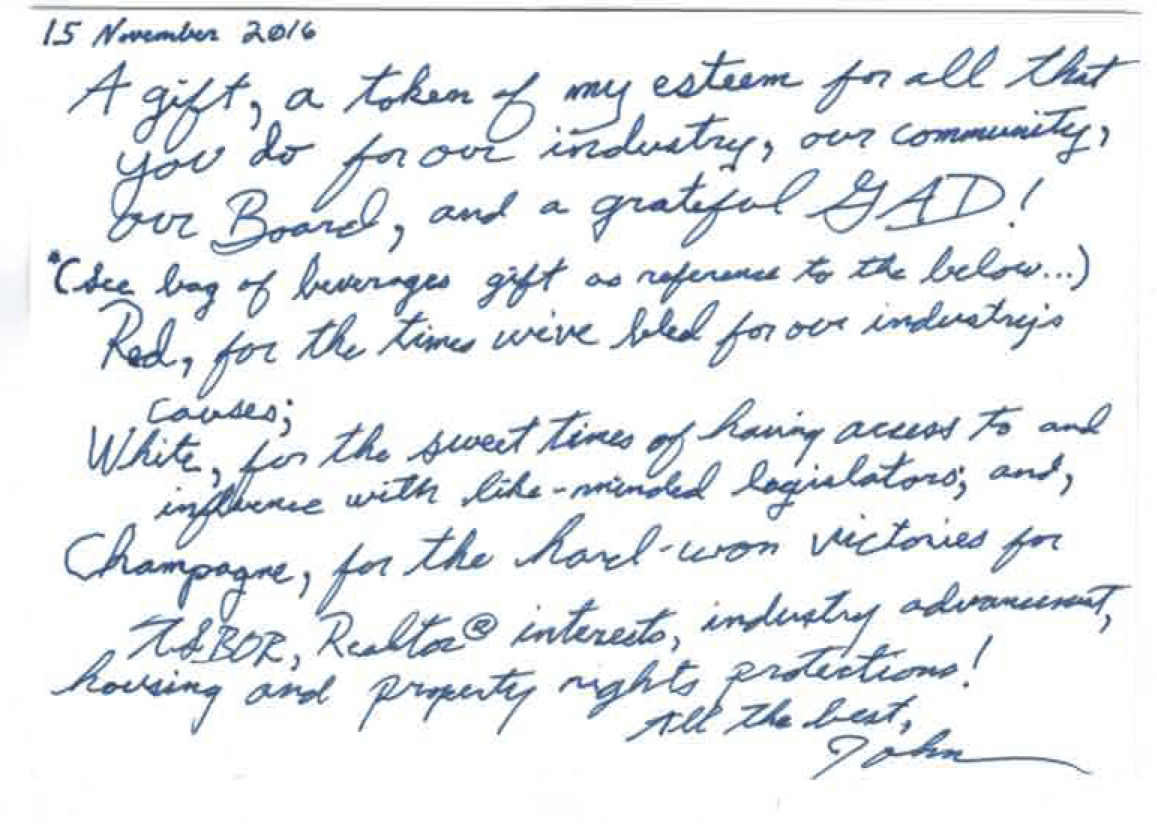 15 November 2016
A gift, a token of my esteem for all that
you do for our industry, our community,
our Board, and a grateful GAD!
*(See bag of beverages gift as reference to the below...)
Red, for the times we've bled for our industry's
causes;
White, for the sweet times of having access to and
influence with like-minded legislators; and,
Champagne, for the hard-won victories for
BOR, Realtor® interests, industry advancement,
housing and property rights protections!
All the best,
John